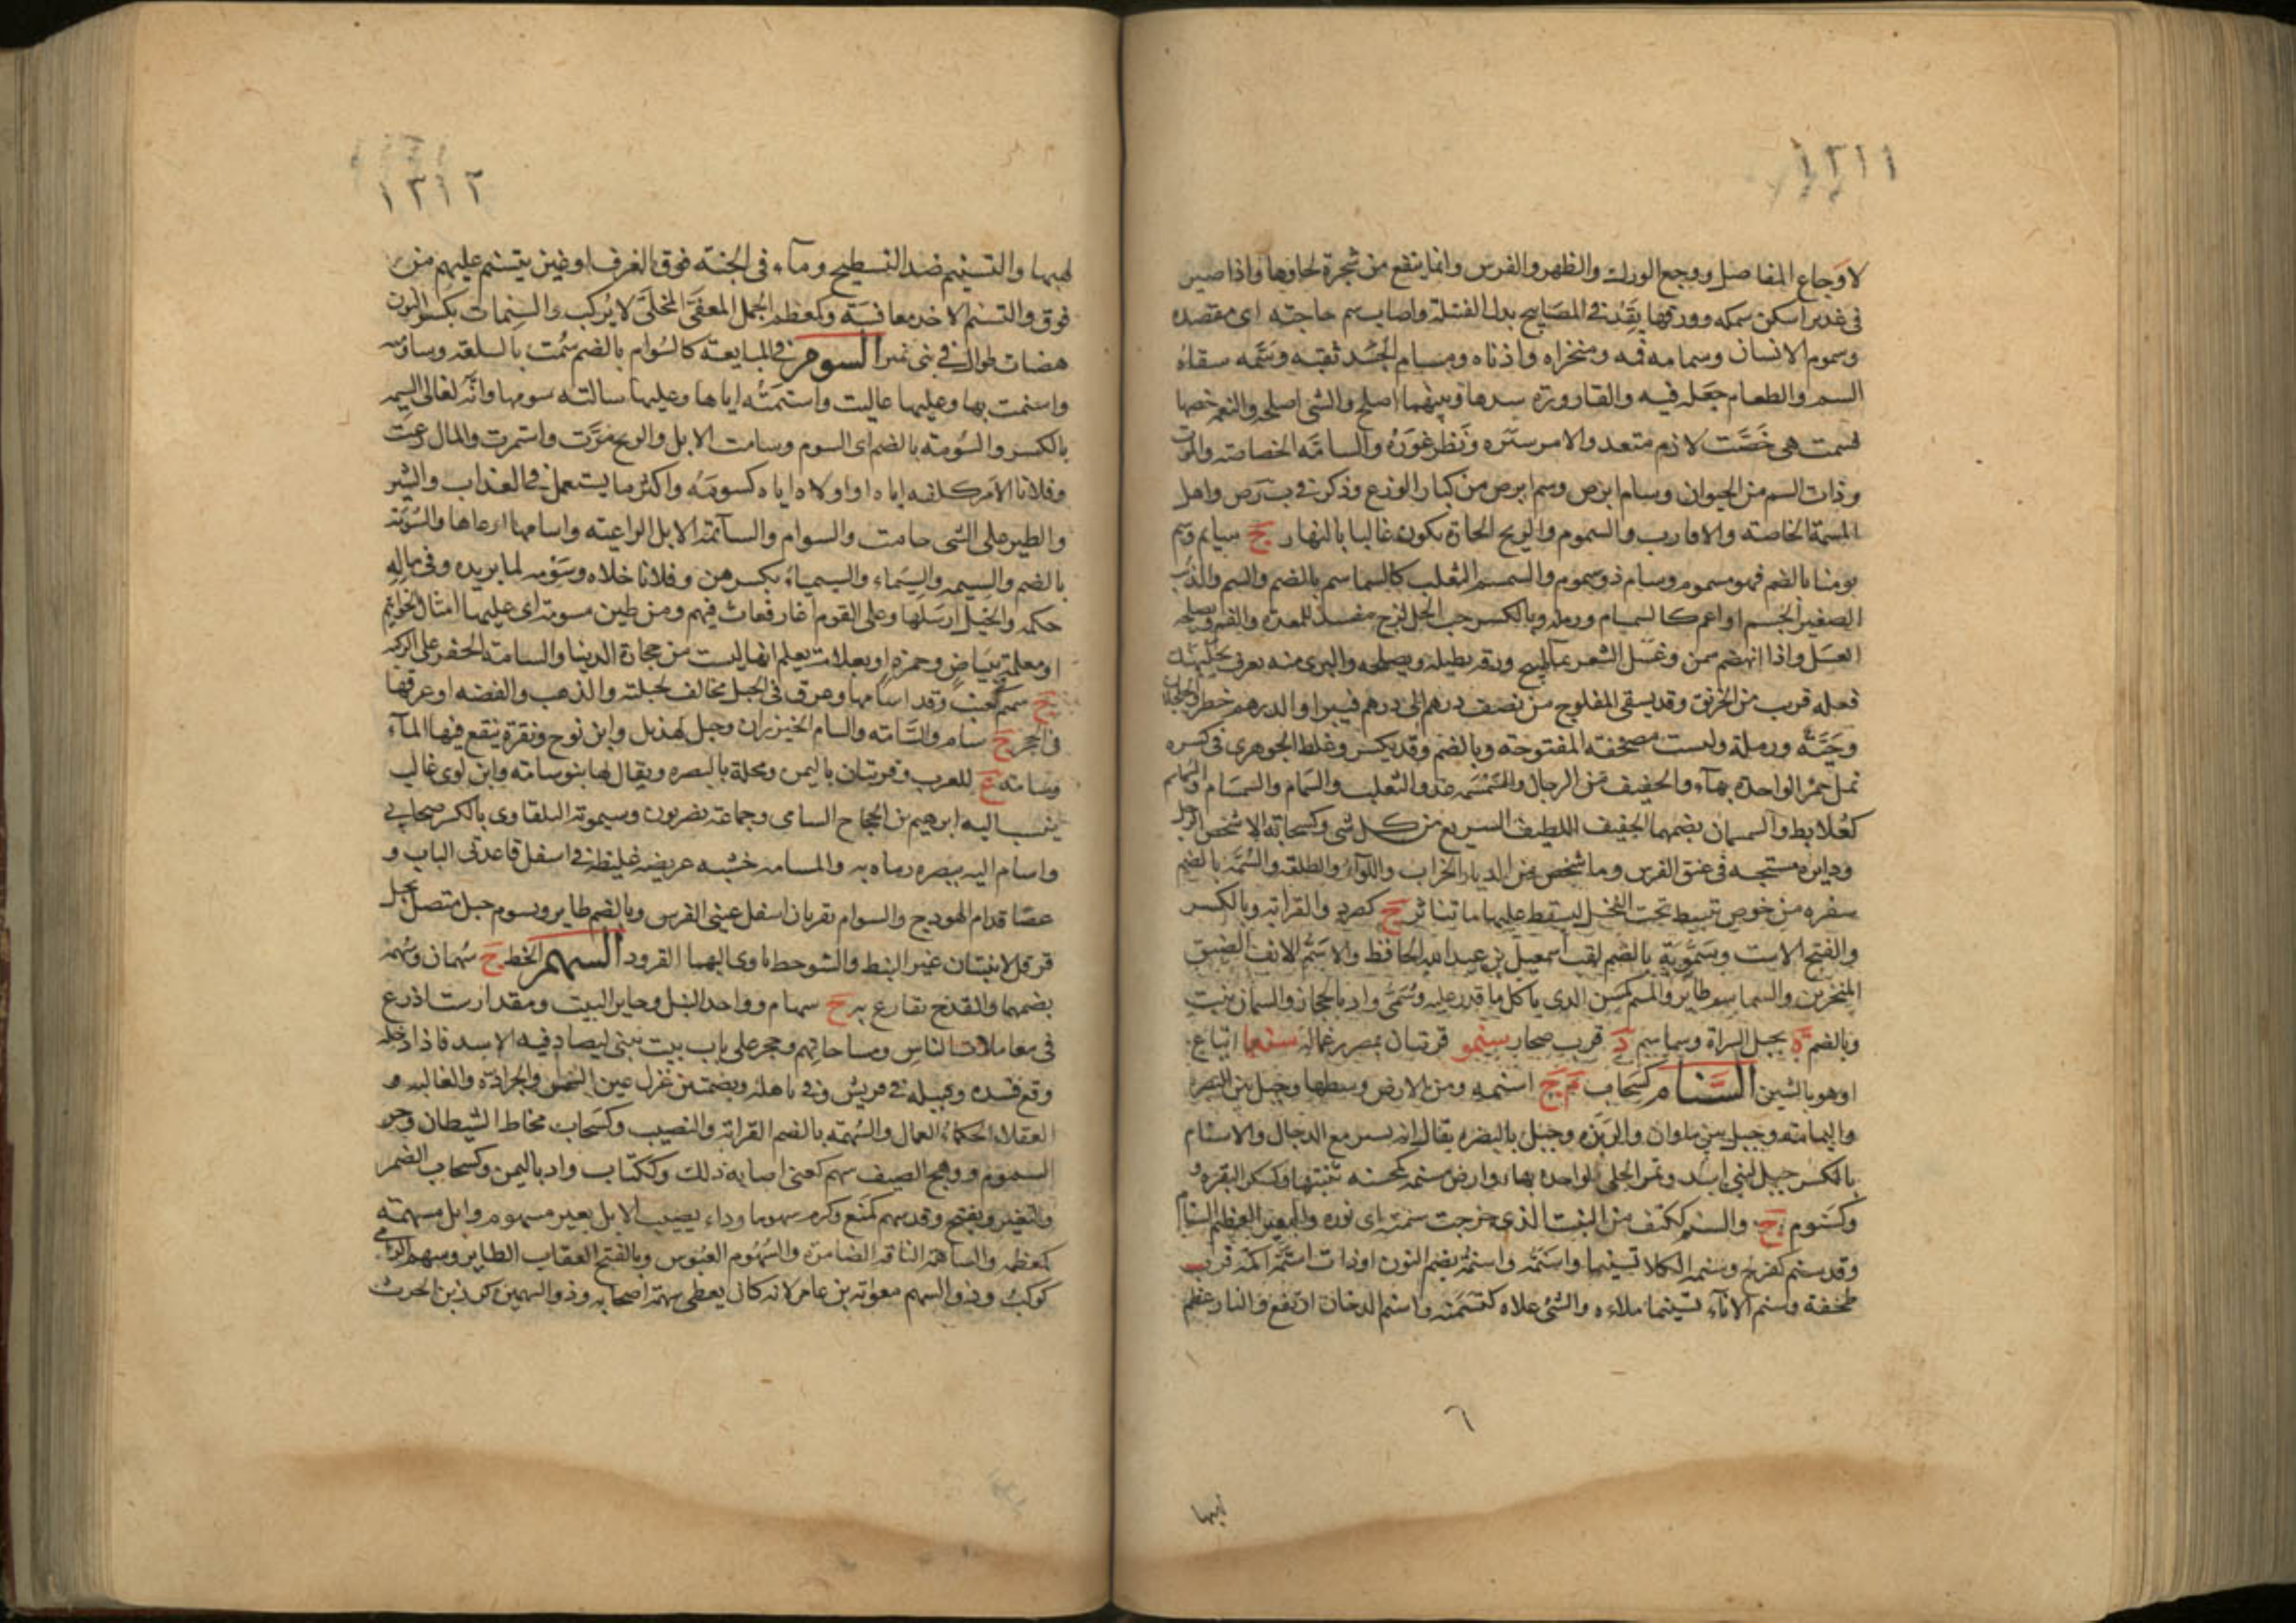 ١٢١١
لاوجاع المفاصل ووجع الورك والظهر والفرس وانما ينفع من شجرة لحاوها واذا صير
فى غدير اسكن سمكه وورقها يقد فى المصابيح بدل الفتيلة واصاب سم حاجته اى مقصده
وسموم الانسان وسمامه فمه ومنخراه واذناه ومسام الجسد ثقبه وسَمَّه سقاه
السم والطعام جعله فيه والقارورة سدها وبينهما اصلح والشى اصلحه والنعمة خصها
فسمت هى خَصَّت لازم متعد والامر سبره ونظر غوره والسامّه الخاصته والموت
وذات السم من الحيوان وسام ابرص وسم ابرص من كبار الوزغ وذكر فى ب رص واهل
المسمة الخاصه والاقارب والسموم والريح الحارة يكون غالبا بالنهار ج سمايم وسم
يومنا بالضم فهو مسموم وسام ذو سموم والسمسم الثعلب كالسماسم بالضم والسم والذئب
الصغير الجسم او اعم كالسمسام ورملة وبالكسر حب الحل لزج مفسد للمعدة والفم ويصلحه
العسل واذا انهضم سمن وغسل الشعر بماء طبيخ ورقه يطيله ويصلحه والبرى منه يعرف بجلبهنك
فعله قريب من الخربق وقد يسقى المفلوج من نصف درهم الى درهم فيبرا والدرهم خطر والجلجلان
وحَيَّه ورملة وليست مصحفة المفتوحة وبالضم وقد يكسر وغلط الجوهرى فى كسره
نمل حمر الواحدة بهاء والخفيف من الرجال والسمسمه عدو الثعلب والسمام والسمسام والسماسم
كعُلابط والسمسمان بضمهما الخفيف اللطيف السريع من كل شى وكسحابة الشخص الرجل
ودايرة مستحبه فى عنق الفرس وما شخص من الديار الخراب واللواء والطلعة والسُّمَّة بالضم
سفره من خوص تبسط تحت النخل ليسقط عليها ما تناثر ج كصرد والقرابة وبالكسر
والفتح الاست وسَمُّويَة بالضم لقب اسمعيل بن عبد الله الحافظ والاسم الانف الضيق
المنخرين والسماسم طاير والمسم كمسن الذى ياكل ما قدر عليه وسُمَّى واد بالحجاز والسمان نبت
وبالضم ة بجبل السراة وسماسم د قرب صحار سنمو قريتان بمصر غمالة سنهما اتباع
او هو بالشين السَّنام كسحاب م ج اسنمه ومن الارض وسطها وجبل بين البصره
واليمامة وجبل بين ماوان والربذه وجبل بالبصره يقال انه يسير مع الدجال والاسنام
بالكسر جبل لبنى اسد وثمر الحلى الواحده بهاء وارض مسنمه كمحسنه تنبتها وكسكر البقره و
وكسنوم ج والسنم ككتف من النبت الذى خرجت سنمته اى نوره والبعير العظيم السنام
وقد سنم كفرح وسنمه الكلا تسنيما واسنمه واسنمة بضم النون او ذات اسنمة اكمة قرب
طخفة وسنم الاناء تسنيما ملاءه والشى علاه كتسنمه واسنم الدخان ارتفع والنار عظم
٦
لهبها
١٢١٢
لهبها والتسنيم ضد التسطيح وماء فى الجنة فوق الغرف او عين يتسنم عليهم من
فوق والتسنم الاخذ مغافسَة وكمعظم الجمل المعفى المخلَّى لا يركب والسنمات بكسر النون
هضبات طوال فى بنى نمير السوم فى المبايعة كالسُوام بالضم سُمت بالسلعة وساومت
واستمت بها وعليها غاليت واستمته اياها وعليها سالته سومها وانه لغالى السيمه
بالكسر والسُومة بالضم اى السوم وسامت الابل والريح مرَّت واستمرت والمال رعت
وفلانا الامر كلفه اياه او اولاه اياه كسومه واكثر ما يستعمل فى العذاب والشر
والطير على الشى حامت والسوام والسائمة الابل الراعية واسامها ارعاها والسُّومَة
بالضم والسيمه والسيماء والسيمياء بكسرهن وفلانا خلاه وسَوَّمه لما يريده وفى ماله
حكمه والخيل ارسلها وعلى القوم اغار فعاث فيهم ومن طين مسومة اى عليها امثال الخواتيم
او معلمة ببياض وحمرة او بعلامة يعلم انها ليست من حجارة الدنيا والسامة الحفر على الركيه
ج سيم كعنب وقد اسامها وعرق فى الجبل مخالف لجبلته والذهب والفضه او عرقها
فى الحجر ج سام والسَّامه والسام الخيزران وجبل لهذيل وابن نوح ونقرة ينقع فيها الماء
وسامة ع للعرب وقريتان باليمن ومحلة بالبصره ويقال لها بنو سامه وابن لوى غالب
ينسب اليه ابرهيم بن الحجاج السامى وجماعة بصريون وسيمويه البلقاوى بالكسر صحابى
واسام اليه ببصره رماه به والمسامه خشبه عريضه غليظه فى اسفل قاعدتى الباب و
عصا قدام الهودج والسوام نقرتان اسفل عينى الفرس وبالضم طاير ويسوم جبل متصل بجبل
فرقد لا ينبتان غير النبط والشوحط ياوى اليهما القرود السهم الخط ج سُهمان وسُهمة
بضمهما والقدح يقارع به ج سهام وواحد النبل وجايز البيت ومقدار ست اذرع
فى معاملات الناس ومساحاتهم وحجر على باب بيت يبنى ليصاد فيه الاسد فاذا دخله
وقع فسده وقبيلة فى قريش وفى باهلة وبضمتين غزل عين الشمس والحرارة والغالبة و
العقلاء الحكماء العمال والسُهمَة بالضم القرابة والنصيب وكسحاب مخاط الشيطان وحر
السموم ووهج الصيف سهم كعنى اصابه ذلك وككتاب واد باليمن وكسحاب الضمر
والتغير ويفتح وقد سهم كمنع وكرم سهوما وداء يصيب الابل بعير مسهوم وابل مسهمة
كمعظمه والساهمة الناقة الضامرة والسُهُوم العبوس وبالفتح العقاب الطاير وسهم الرامى
كوكب وذو السهم معوية بن عامر لانه كان يعطى سهمه اصحابه وذو السهمين كرز بن الحرث